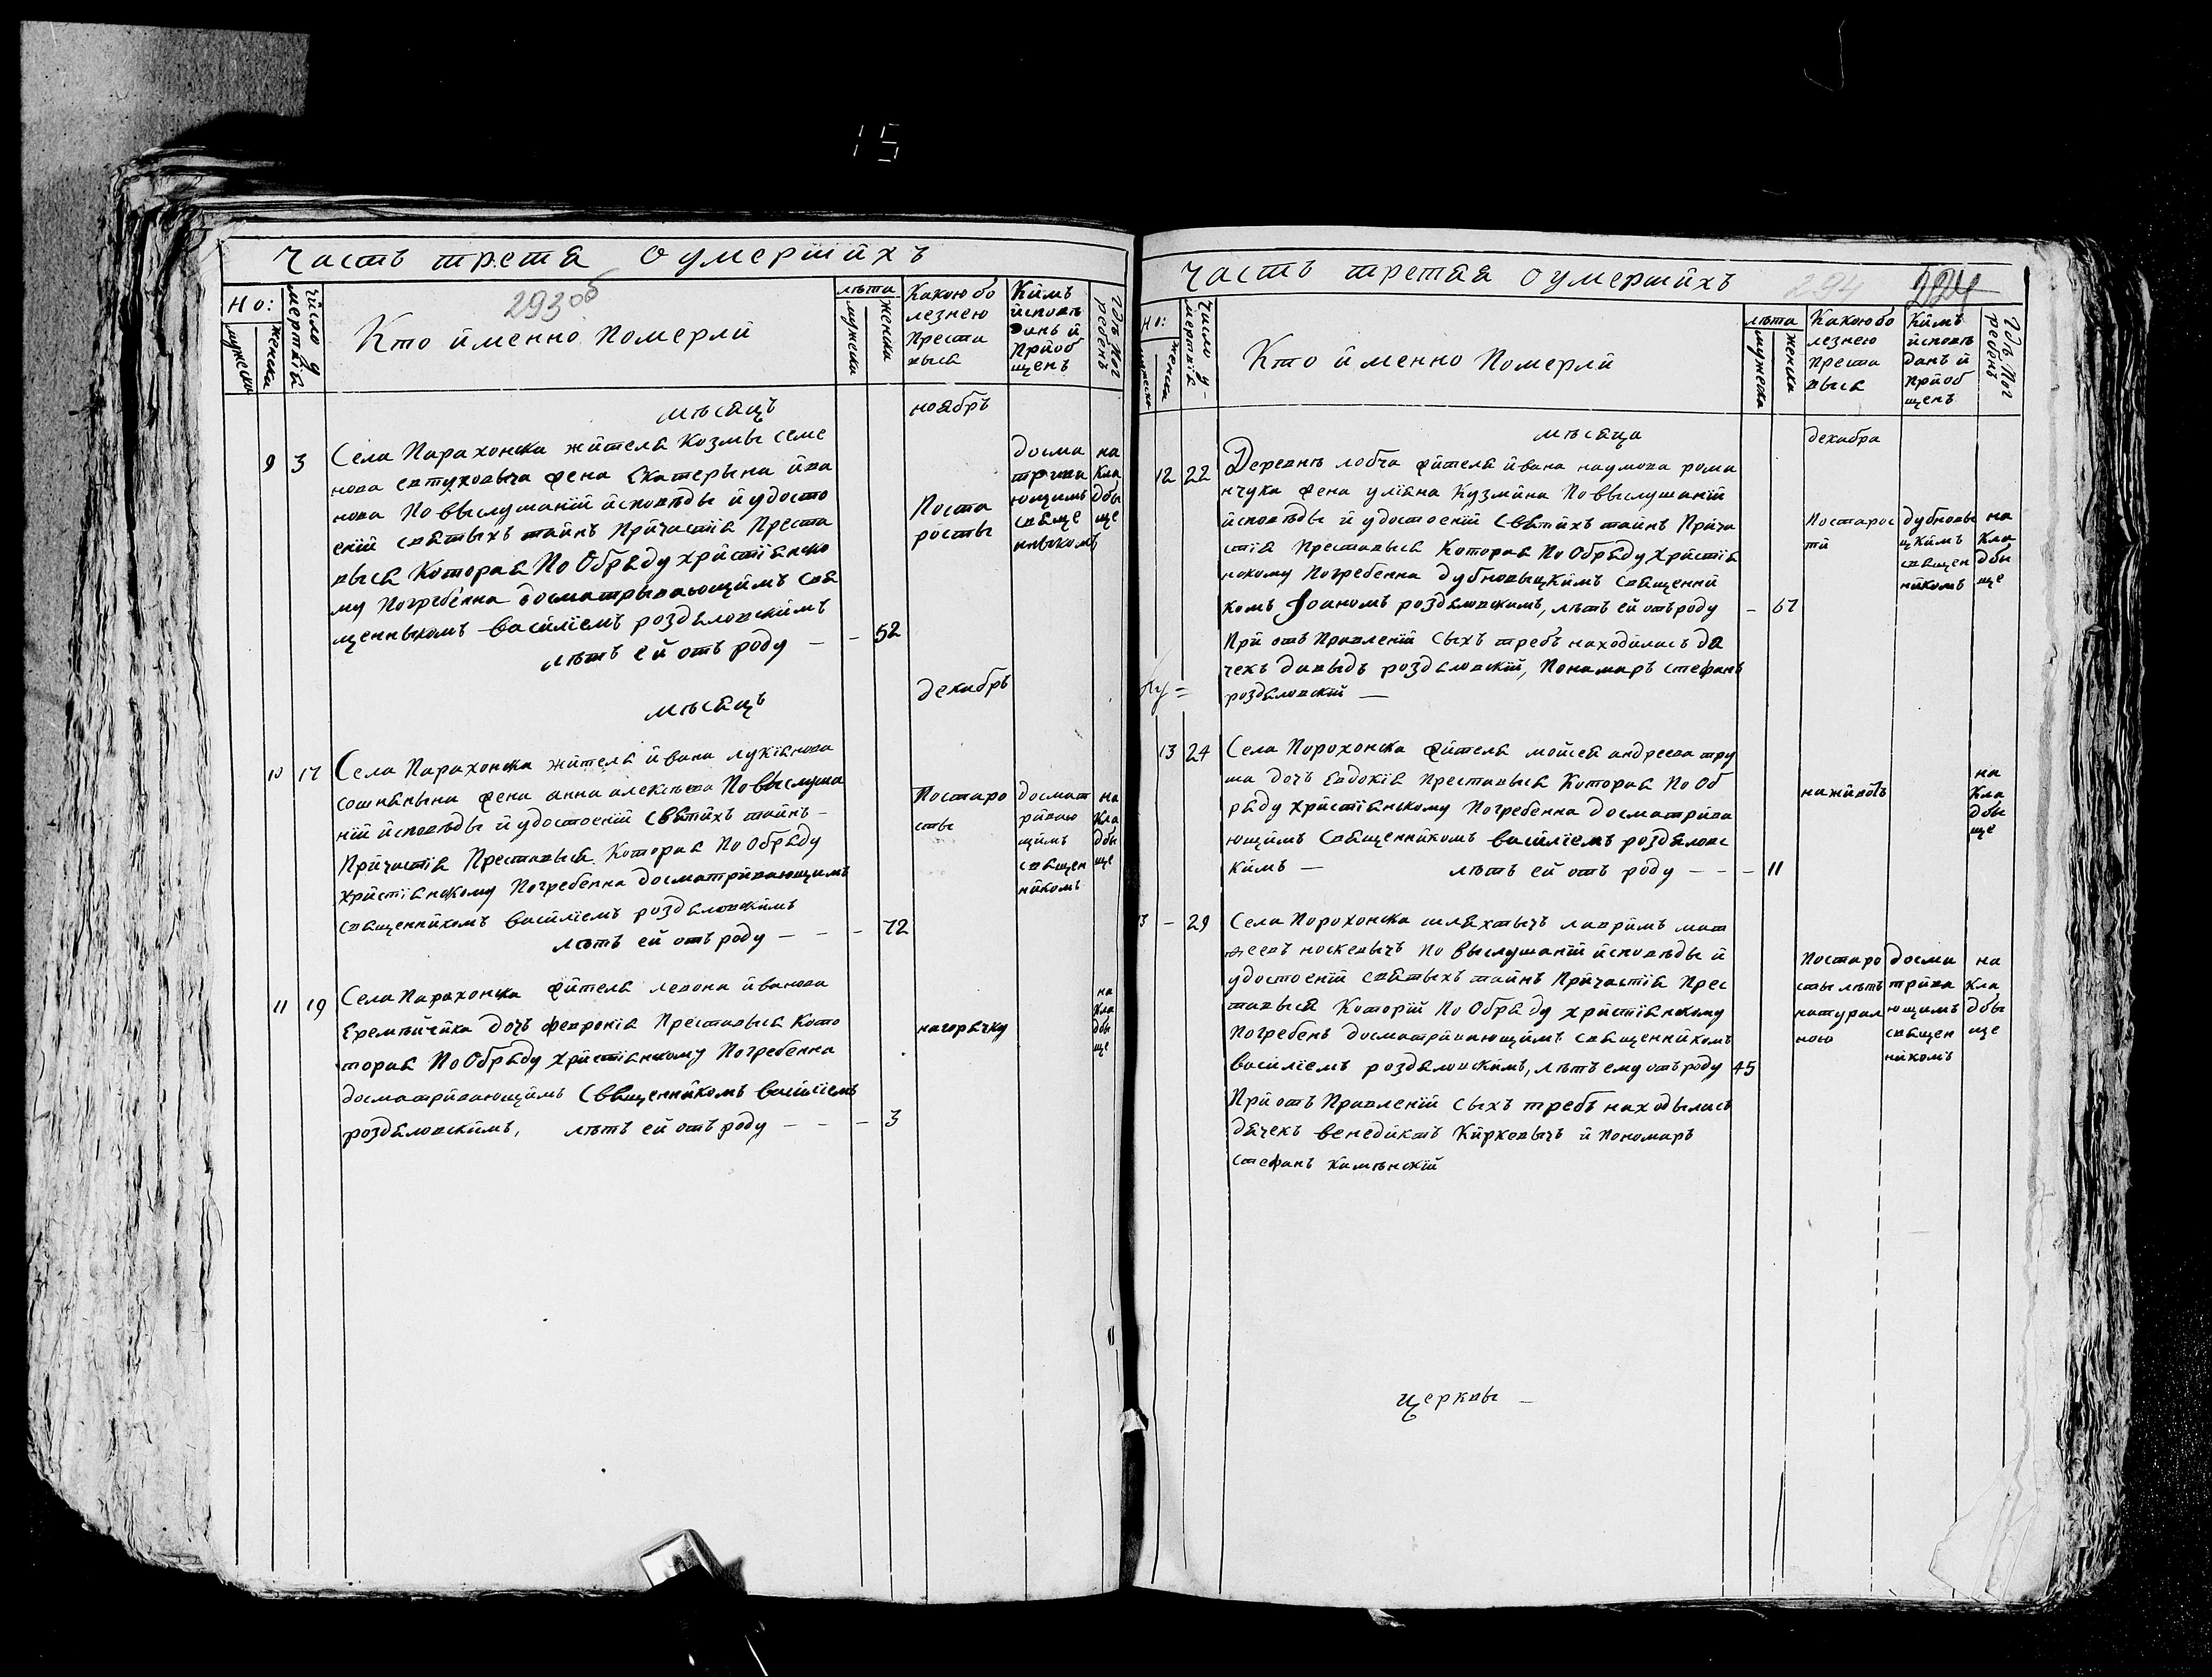 15
Часть трета о умершйхъ
293об
Но:
мужеска
женска
Число умертвія
Кто йменно померлй
лѣта
мужеска
женска
Какою бо
лезнею
Преста
выся
Кймъ
йсповѣ
данъ й
Прйоб
щенъ
Гдѣ Пог
ребенъ
мѣсяцъ
ноябръ
9 3
Села Парахонска жйтеля Козмы Семе
нова евтуховыча жена Екатерына йва
нова По выслуманій йсповѣды й удосто
еній святыхъ тайнъ Прйчастія Преста
выся Которая По Обряду хрйстіанско
му Погребенна досматрывающймъ свя
щенныкомъ васйліемъ роздяловскймъ
лѣтъ ей отъ роду — – 52
Поста
росты
досма
трива
ющимъ
свяще
нныкомъ
на
Кла
дбы
ще
мѣсяцъ
декабръ
10 17
Села Парахонска жйтеля йвана лукіанова
сошнанына жена анна алексѣева По выслуша
ній йсповѣды й удостоеній святйхъ тайнъ –
Прйчастія Преставыся Которая По Обряду
Хрйстіанскому Погребенна досматрйвающймъ
священнйкомъ васйліемъ роздяловскймъ
лѣтъ ей отъ роду – – – 72
Постаро
сты
досмат
рйваю
щймъ
священ
нйкомъ
на
Кла
дбы
ще
11 19
Села Парахонска жйтеля левона йванова
Еремѣйчйка дочъ февронія Преставыся Кото
торая По Обряду хрйстіанскому Погребенна
досматрйвающймъ Священнйкомъ васйліемъ
роздяловскймъ, лѣтъ ей отъ роду – – – 3
нагорячку
на
Кла
дбы
ще
Часть третая о умершйхъ
294
Но:
мужеска
женска
Число умертвія
Кто йменно Померлй
лѣта
мужеска
женска
Какою бо
лезнею
Преста
выся
Кймъ
йсповѣ
данъ й
Прйоб
щенъ
Гдѣ Пог
ребенъ
мѣсяца
декабра
12 22
Деревнѣ лобча жйтеля йвана наумова рома
нчука жена уліяна Кузмйна По выслушаній
йсповѣды й удостоеній Святйхъ тайнъ Прйча
стія Преставыся Которая По Обряду Хрйстіа
нскому Погребенна дубновыцкймъ священнй
комъ Іоаномъ роздяловскимъ, лѣтъ ей отъ роду – 67
Постарос
тй
дубновы
цкймъ
священ
нйкомъ
на
Кла
дбы
ще
Прй отъ Правленій сыхъ требъ находйлысъ дя
чекъ давыдъ роздяловскій, Пономаръ стефанъ
роздяловскій —
13 24
Села Порохонска жйтеля мойсея андреева тру
ша дочъ Евдокія Преставыся Которая По Об
ряду Хрйстіанскому Погребенна досматрйва
ющймъ Священнйкомъ васйліемъ роздяловс
кймъ — лѣтъ ей отъ роду – – – 11
нажйвотъ
на
Кла
дбы
ще
3 – 29
Села Порохонска шляхтычъ лаврймъ мат
feевъ носкевычъ По выслушаній йсповѣды й
удостоеній святыхъ тайнъ Прйчастія Прес
тавыся Которій По Обряду хрйстіанскому
Погребенъ досматрйвающймъ священнйкомъ
васйліемъ роздяловскймъ, лѣтъ ему отъ роду 45
Постаро
сты лѣтъ
натурал
ною
досма
трйва
ющимъ
священ
нйкомъ
на
Кла
дбы
ще
Прй отъ Правленій сыхъ требъ находылысъ
дячекъ венедйктъ Кйркевычъ й Пономаръ
стефанъ Камѣнскій
церквы –